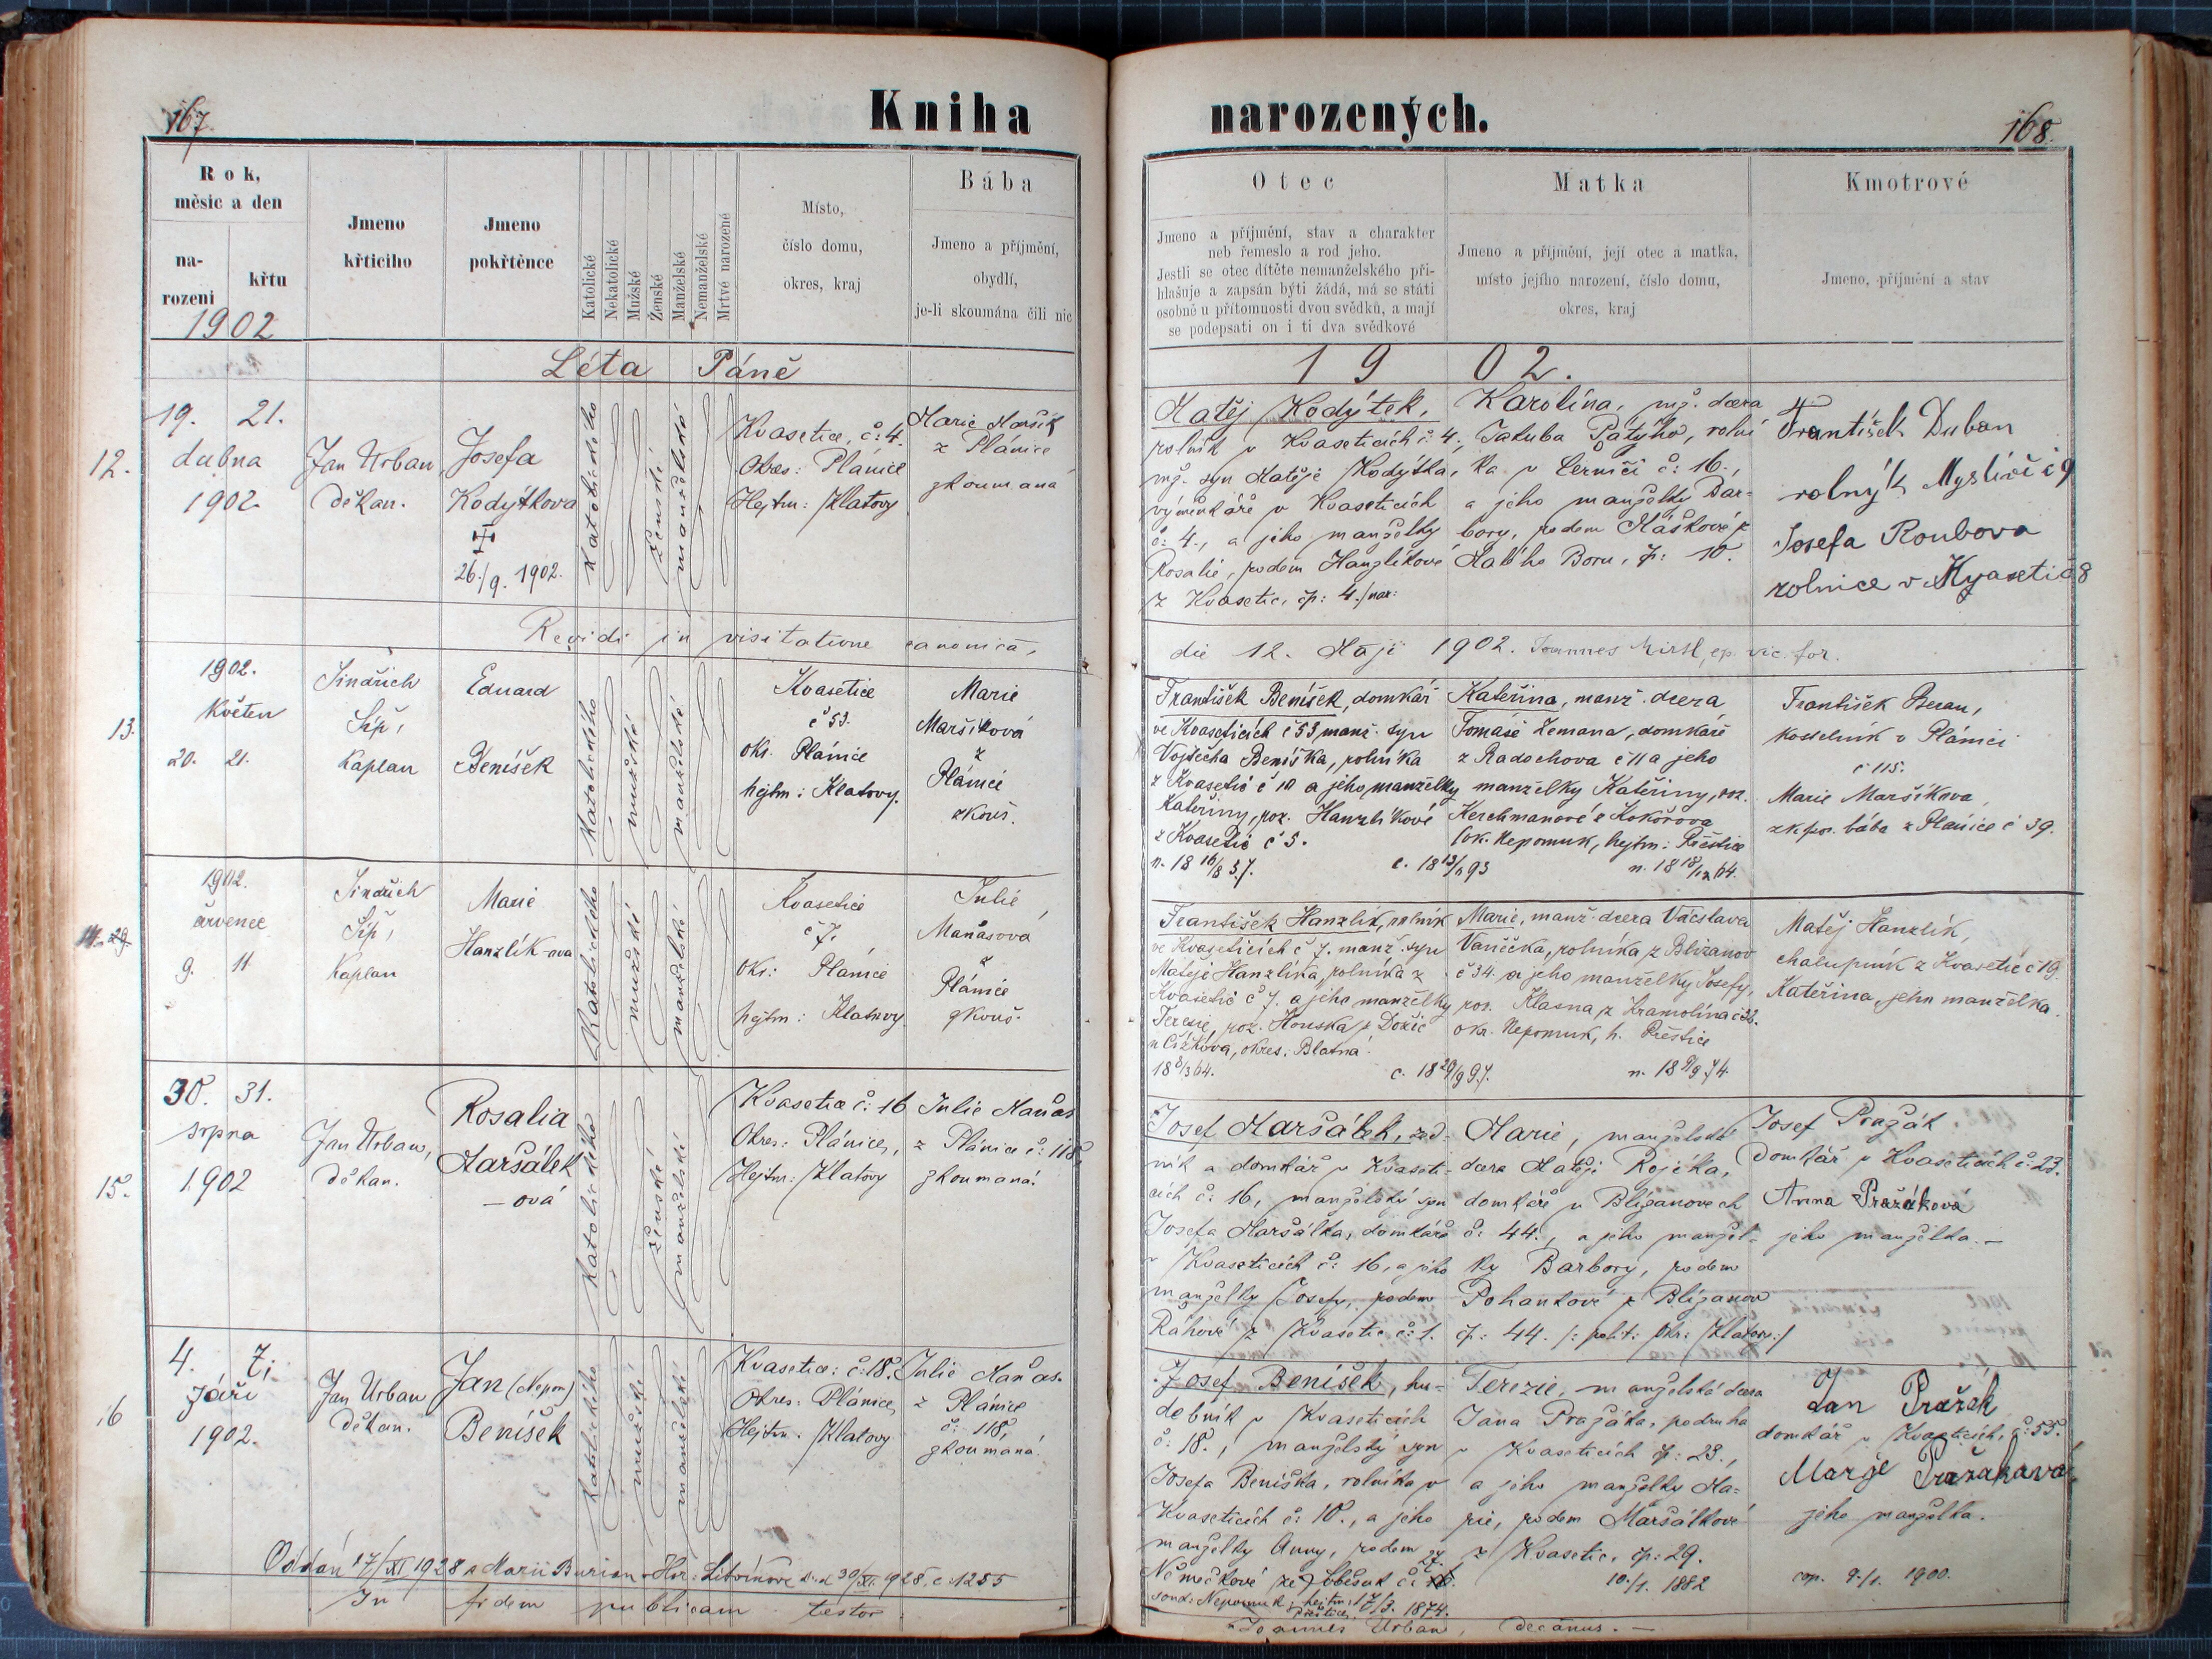 167.
Kniha
narozených.
168.
Rok,
měsíc a den
na-
rození
křtu
1902
Jmeno
křticiho
Jmeno
pokřtěnce
Katolické
Nekatolické
Mužské
Ženské
Manželské
Nemanželské
Mrtvé narozené
Místo,
číslo domu,
okres, kraj
Bába
Jmeno a příjmění,
obydlí,
je-li skoumána čili nic
Otec
Jmeno a příjmění, stav a charakter
neb řemeslo a rod jeho.
Jestli se otec dítěte nemanželského při-
hlašuje a zapsán býti žádá, má se státi
osobně u přítomnosti dvou svědků, a mají
se podepsati on i ti dva svědkové
Matka
Jmeno a příjmění, její otec a matka,
místo jejího narození, číslo domu,
okres, kraj
Kmotrové
Jmeno, příjmění a stav
Léta Páně
1902.
12.
19. 21.
dubna
1902
Jan Urban
děkan.
Josefa
Kodýtkova
26./9. 1902.
Katolického
ženské
manželské
Kvasetice, č: 4.
Okres: Plánice
Hejtm: Klatovy
Marie Maršík
z Plánice
zkoumaná
Matěj Kodýtek,
rolník v Kvaseticích č: 4,
mž. syn Matěje Kodýtka,
výměnkáře v Kvaseticích
č: 4., a jeho manželky
Rosalie, rodem Hanzlíkové
z Kvasetic, čp: 4. nar:
Karolína, mž. dcera
Jakuba Pátýho, rolní
ka v Černíči č: 16.,
a jeho manželky Bar-
bory, rodem Máškové z
Malého Boru, čp: 10.
František Duban
rolnýk Myslívi č 9
Josefa Roubova
rolnice v Kvasetic 8
Revidi in visitatione canonica,
die 12. Maji 1902. Joannes
vic. for.
13.
1902.
Květen
20. 21.
Jindřich
Šíp,
Kaplan
Eduard
Beníšek
Katolického
mužské
manželské
Kvasetice
č 53.
oks. Plánice
hejtm: Klatovy.
Marie
Maršíková
z
Plánice
zkouš.
František Beníšek, domkář
ve Kvaseticích č 53, manž. syn
Vojtěcha Beníška, rolníka
z Kvasetic č 10 a jeho manželky
Kateřiny, roz. Hanzlíkové
z Kvasetic č 5.
n. 18 16/8 57.
c. 18 13/ 93
Kateřina, manž. dcera
Tomáše Zemana, domkáře
z Radochova č 11 a jeho
manželky Kateřiny, roz.
Kerchmanové z Kokořova
(ok. Nepomuk, hejtm: Přeštice
n. 18 18/12 64.
František Beran,
kostelník v Plánici
č 115.
Marie Maršíkova,
zkouš. bába z Plánice č 39.
1902.
červenec
9. 11
Jindřich
Šíp,
Kaplan
Marie
Hanzlík-ova
Katolického
mužské
manželské
Kvasetice
č 7.
Oks.: Plánice
hejtm: Klatovy
Julie
Maňasová
z
Plánice
zkouš.
František Hanzlík, rolník
ve Kvaseticích č 7. manž. syn
Matěje Hanzlíka, rolníka z
Kvasetic č 7. a jeho manželky
Terezie, roz. Houska z Dožic
u Čížkova, okres: Blatná.
18 8/3 64.
c. 18 29/9 97.
Marie, manž. dcera Václava
Vaněčka, rolníka z Blížanov
č 34. a jeho manželky Josefy,
roz. Klasna z Kramolína č 26.
okr. Nepomuk, h. Přeštice
n. 18 9/9 74.
Matěj Hanzlík,
chalupník z Kvasetic č 19.
Kateřina, jeho manželka.
15.
30. 31.
srpna
1902
Jan Urban,
děkan.
Rosalia
Maršálek
-ová
Katolického
ženské
manželské
Kvasetice č: 16
Okres: Plánice,
Hejtm: Klatovy
Julie Maňas
z Plánice č: 118,
zkoumaná.
Josef Maršálek, zed-
ník a domkář v Kvaseti-
cích č: 16, manželský syn
Josefa Maršálka, domkáře
v Kvaseticích č: 16, a jeho
manželky Josefy, rodem
Ráhové z Kvasetic č: 1.
Marie, manželská
dcera Matěje Rojčka,
domkáře v Blížanovech
č: 44., a jeho manžel-
ky Barbory, rodem
Pohankové z Blížanov
čp: 44. /: polit: Okr: Klatovy:/
Josef Pražák
Domkář v Kvaseticích č: 23.
Anna Pražáková
jeho manželka.-
16
4. 7.
Září
1902.
Jan Urban
děkan.
Jan (Nepom)
Beníšek
Katolického
mužské
manželské
Kvasetice: č: 18.
Okres: Plánice,
Hejtm. Klatovy
Julie Maňas
z Plánice
č: 118,
zkoumaná.
Josef Beníšek, hu-
debník v Kvaseticích
č: 18., manželský syn
Josefa Beníška, rolníka v
Kvaseticích č: 10., a jeho
manželky Anny, rodem
Němečkové ze Soběsuk č:
27.
soud: Nepomuk, hejtm:
Přeštice. 17/3. 1874.
Terezie, manželská dcera
Jana Pražáka, podruha
v Kvaseticích čp: 23.,
a jeho manželky Ma-
rie, rodem Maršálkové
z Kvasetic, čp: 29.
10./1. 1882
Jan Pražák
domkář v Kvaseticích, č: 55.
Marye Pražákavá
jeho manželka.
cop. 9./1. 1900.
Oddán 17/XI 1928 s Marií Burian v Hor: Litvínově dd 30/XI. 1928, č 1255
In fidem publicam testor:
Joannes Urban, decanus.-